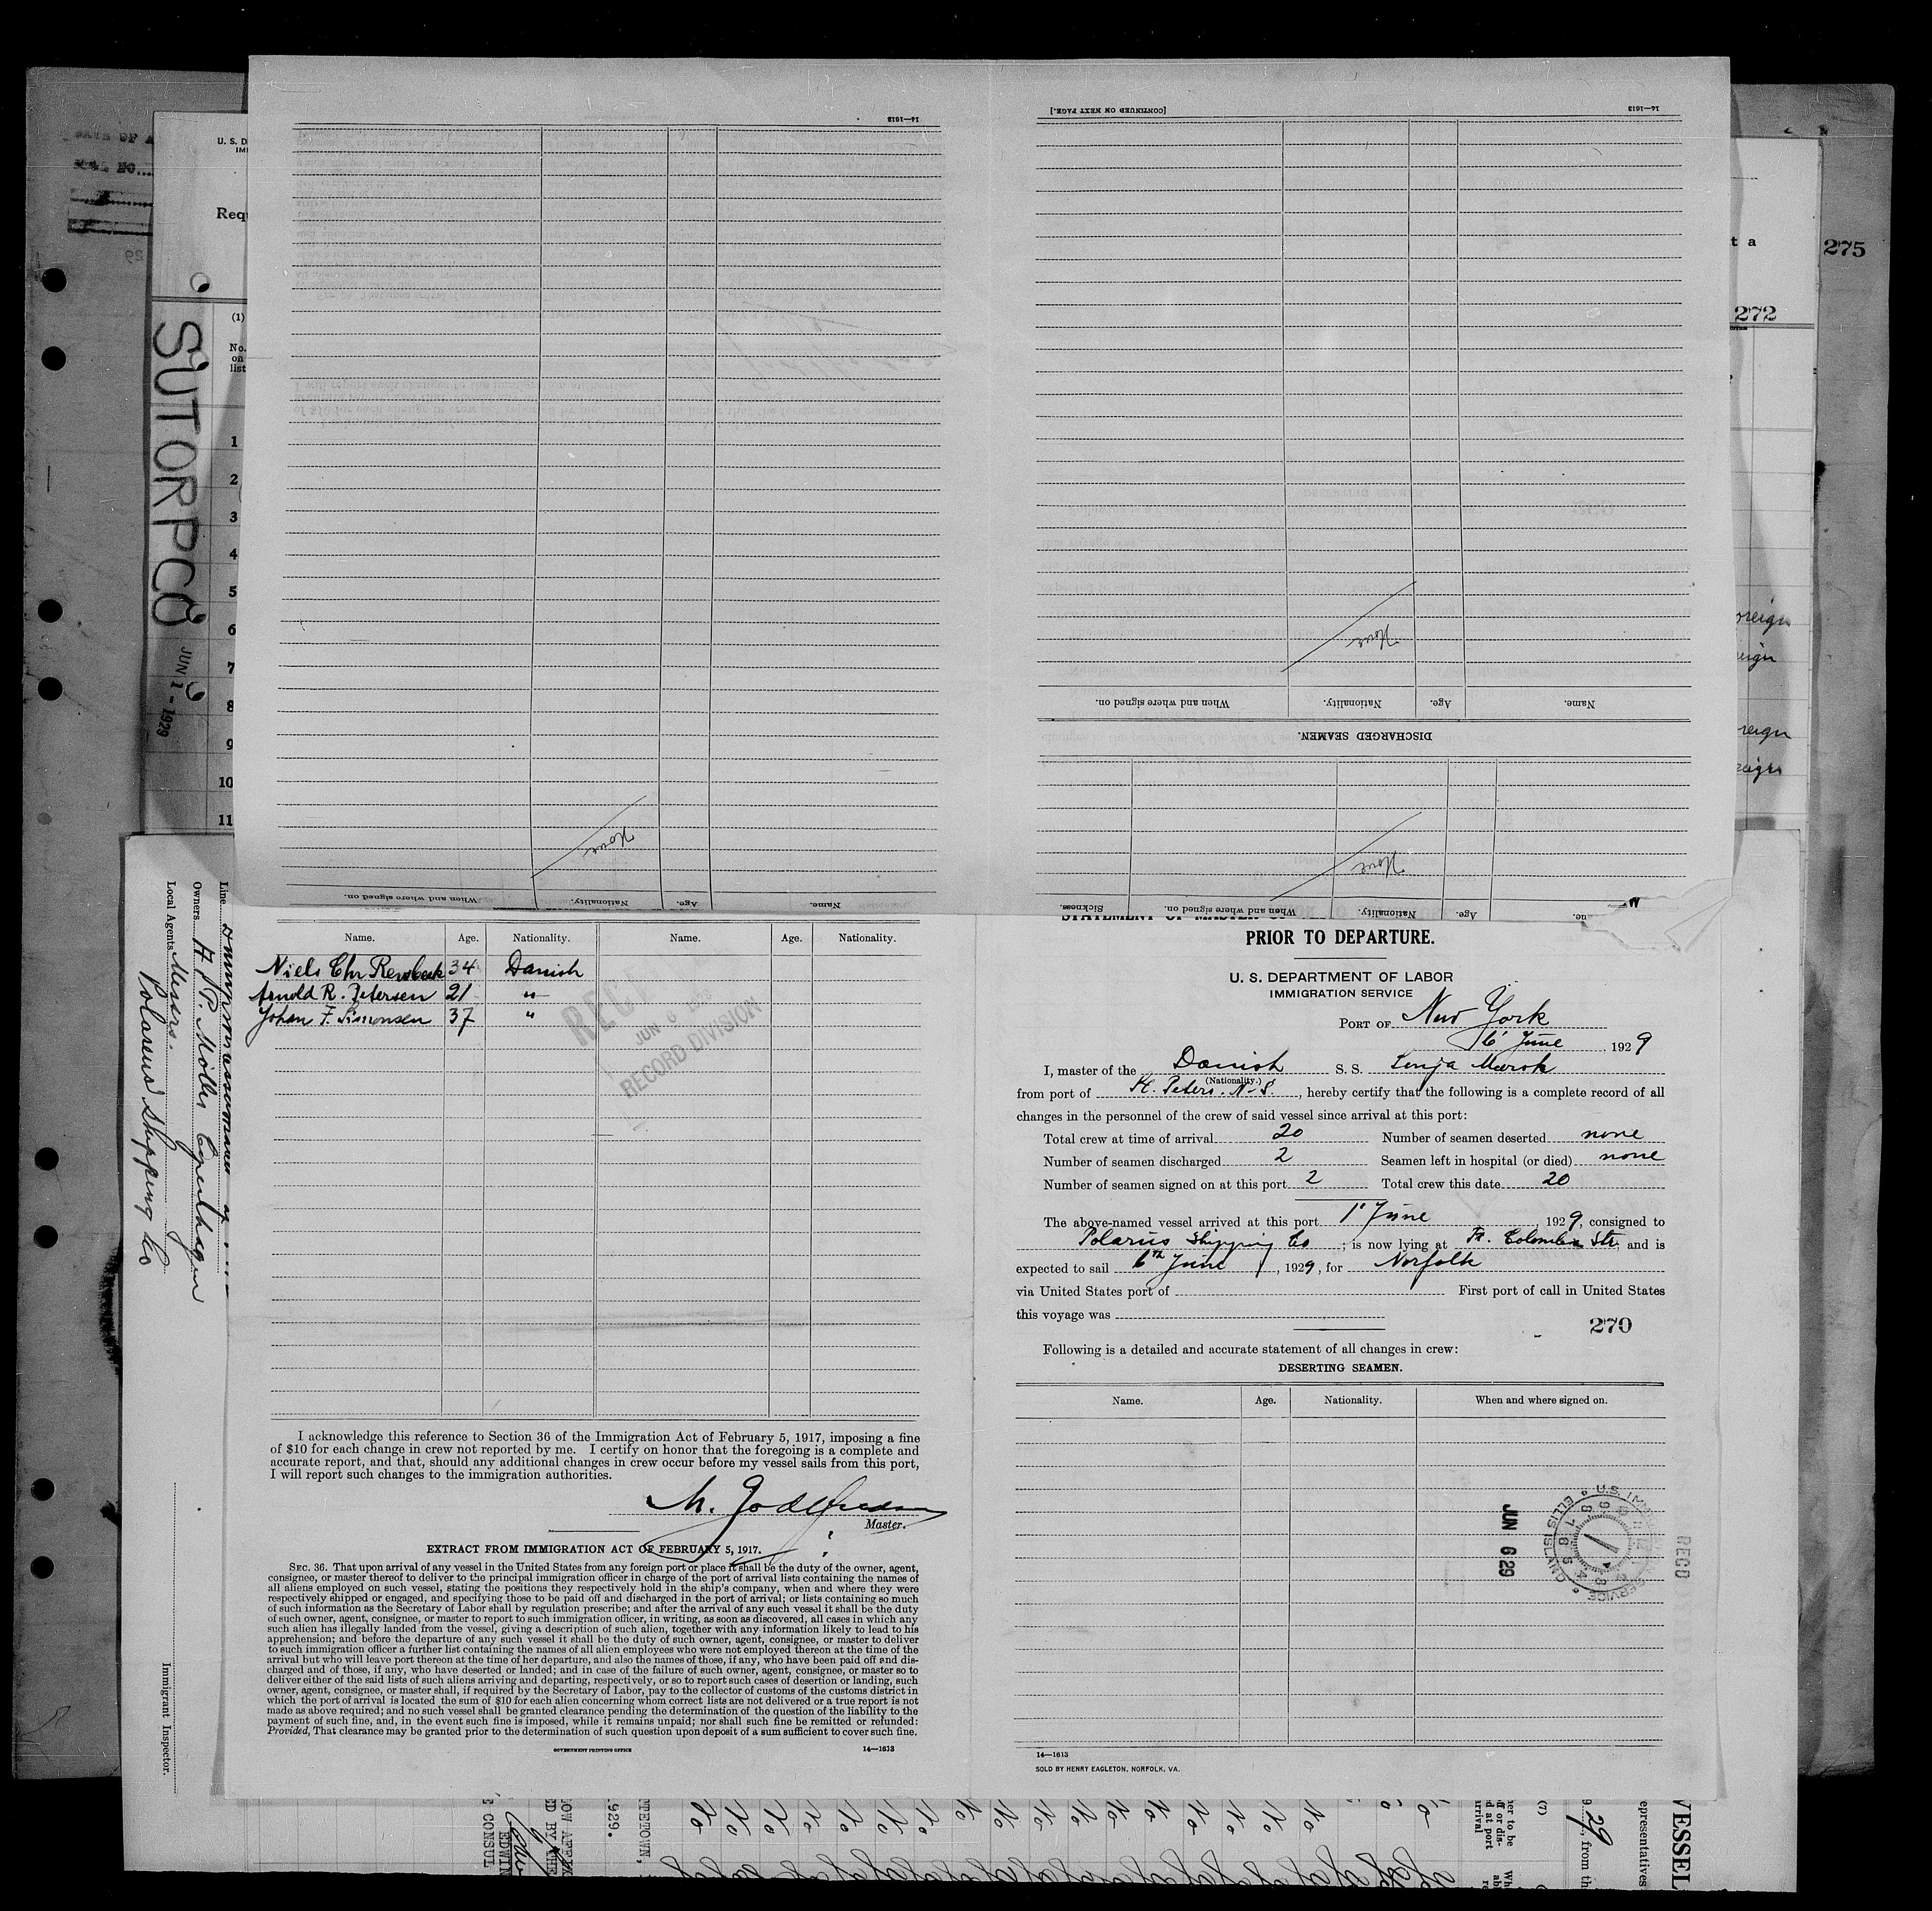 14—1613
[CONTINUED ON NEXT PAGE.]
14—1613
275
272
U. S. D
Requ
t a
(1)
No.
on
list
1
2
3
4
5
6
7
8
9
10
11
SUTORPCO
JUN 1 - 1929
oreign
eign
reign
eign
None
When and where signed on.
Nationality.
Age.
Name.
None
When and where signed on.
Nationality.
Age.
Name.
DISCHARGED SEAMEN.
None
Sickness.
When and where signed on.
Nationality.
Age.
Line
Owners A P. Möller Copenhagen
Local Agents Messrs.
Polareus Shipping Co
Immigrant Inspector.
Name. Age. Nationality. Name. Age. Nationality.
Niels Chr 34 Danish
Arnold R. Petersen 21 "
Johan F. Simonsen 37 "
JUN 6
RECORD DIVISION
I acknowledge this reference to Section 36 of the Immigration Act of February 5, 1917, imposing a fine
of $10 for each change in crew not reported by me. I certify on honor that the foregoing is a complete and
accurate report, and that, should any additional changes in crew occur before my vessel sails from this port,
I will report such changes to the immigration authorities.
Master.
EXTRACT FROM IMMIGRATION ACT OF FEBRUARY 5, 1917.
SEC. 36. That upon arrival of any vessel in the United States from any foreign port or place it shall be the duty of the owner, agent,
consignee, or master thereof to deliver to the principal immigration officer in charge of the port of arrival lists containing the names of
all aliens employed on such vessel, stating the positions they respectively hold in the ship's company, when and where they were
respectively shipped or engaged, and specifying those to be paid off and discharged in the port of arrival; or lists containing so much
of such information as the Secretary of Labor shall by regulation prescribe; and after the arrival of any such vessel it shall be the duty
of such owner, agent, consignee, or master to report to such immigration officer, in writing, as soon as discovered, all cases in which any
such alien has illegally landed from the vessel, giving a description of such alien, together with any information likely to lead to his
apprehension; and before the departure of any such vessel it shall be the duty of such owner, agent, consignee, or master to deliver
to such immigration officer a further list containing the names of all alien employees who were not employed thereon at the time of the
arrival but who will leave port thereon at the time of her departure, and also the names of those, if any, who have been paid off and dis-
charged and of those, if any, who have deserted or landed; and in case of the failure of such owner, agent, consignee, or master so to
deliver either of the said lists of such aliens arriving and departing, respectively, or so to report such cases of desertion or landing, such
owner, agent, consignee, or master shall, if required by the Secretary of Labor, pay to the collector of customs of the customs district in
which the port of arrival is located the sum of $10 for each alien concerning whom correct lists are not delivered or a true report is not
made as above required; and no such vessel shall be granted clearance pending the determination of the question of the liability to the
payment of such fine, and, in the event such fine is imposed, while it remains unpaid; nor shall such fine be remitted or refunded:
Provided, That clearance may be granted prior to the determination of such question upon deposit of a sum sufficient to cover such fine.
GOVERNMENT PRINTING OFFICE 14—1613
STATEMENT OF MASTER OF
PRIOR TO DEPARTURE.
U. S. DEPARTMENT OF LABOR
IMMIGRATION SERVICE
PORT OF New York
6' June 1929
I, master of the Danish S. S. Sonja Mærsk
(Nationality.)
from port of St. Peters. N.S., hereby certify that the following is a complete record of all
changes in the personnel of the crew of said vessel since arrival at this port:
Total crew at time of arrival 20 Number of seamen deserted none
Number of seamen discharged 2 Seamen left in hospital (or died) none
Number of seamen signed on at this port 2 Total crew this date 20
The above-named vessel arrived at this port 1' June, 1929, consigned to
Polarius Shipping Co; is now lying at Ft. Colombia Str. and is
expected to sail 6th June, 1929, for Norfolk
via United States port of First port of call in United States
this voyage was
270
Following is a detailed and accurate statement of all changes in crew:
DESERTING SEAMEN.
Name. Age. Nationality. When and where signed on.
JUN 6 29
REC'D
14—1613
SOLD BY HENRY EAGLETON, NORFOLK, VA.